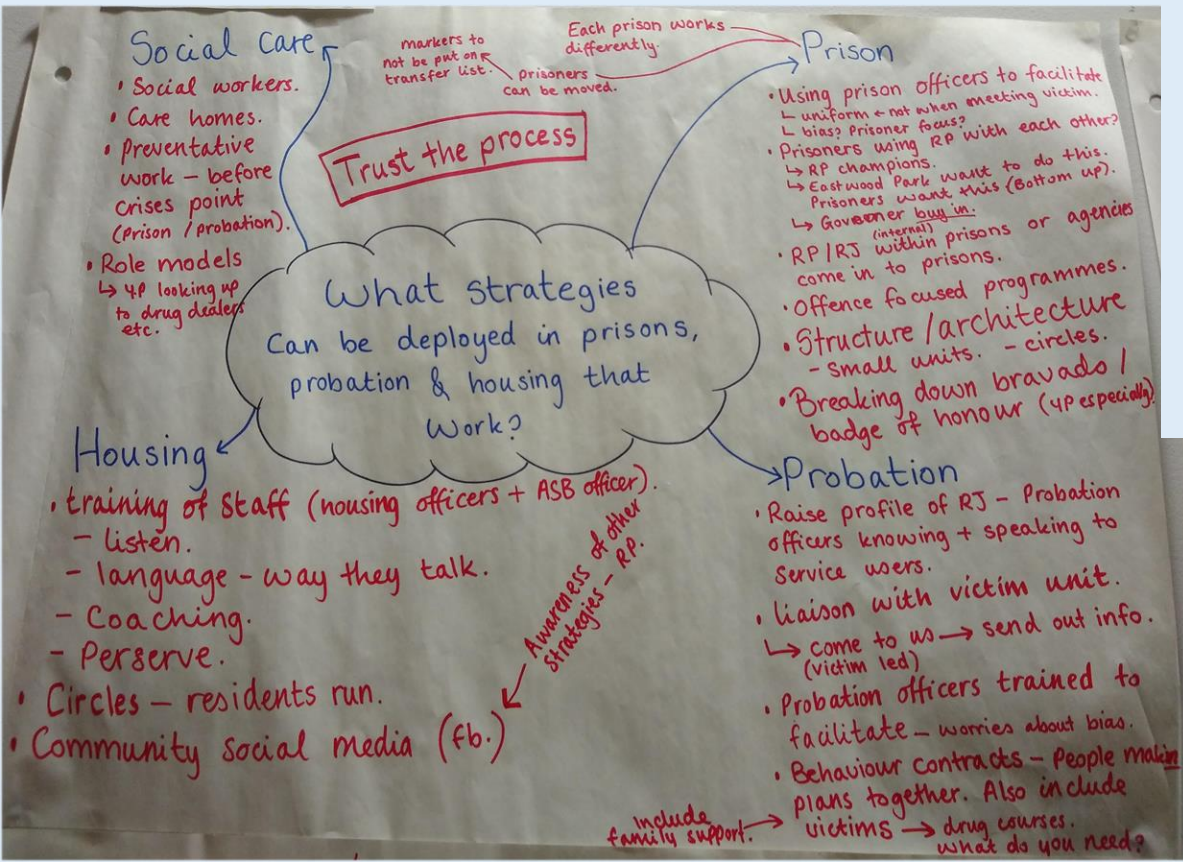 Social care
• Social workers.
• Care homes.
• Preventative
work – before
crises point
(prison / probation).
• Role models
↳ YP looking up
to drug dealers
etc.
markers to
not be put on
transfer list.
prisoners
can be moved.
Each prison works
differently.
Trust the process
Prison
• Using prison officers to facilitate
↳ uniform ← not when meeting victim.
↳ bias? Prisoner focus?
• Prisoners using RP with each other?
↳ RP champions.
↳ Eastwood Park want to do this.
Prisoners want this (Bottom up).
↳ Governer buy in.
(internal)
• RP/RJ within prisons or agencies
come in to prisons.
• Offence focused programmes.
• Structure / architecture
- small units. - circles.
• Breaking down bravado /
badge of honour (YP especially)
What strategies
Can be deployed in prisons,
probation & housing that
work?
Housing
• training of staff (housing officers + ASB officer).
- listen.
- language - way they talk.
- Coaching.
- Perserve.
• Circles – residents run.
• Community social media (fb.)
Awareness of other
strategies – RP.
Probation
• Raise profile of RJ – Probation
officers knowing + speaking to
service users.
• liaison with victim unit.
↳ come to us → send out info.
(victim led)
• Probation officers trained to
facilitate – worries about bias.
• Behaviour contracts – People makin
plans together. Also include
victims → drug courses.
what do you need?
include
family support. →